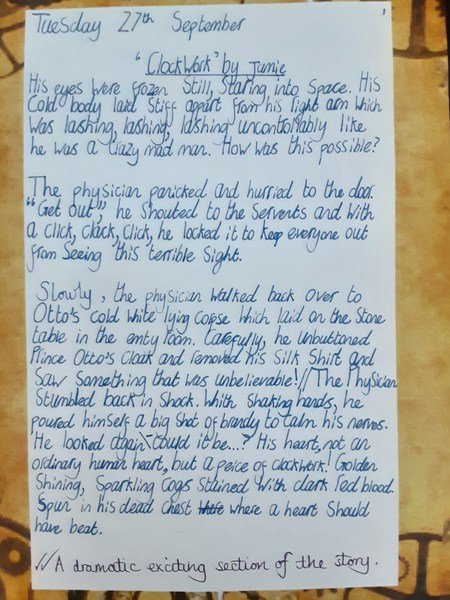 1
Tuesday 27th September
"Clockwork" by Jamie
His eyes were frozen still, staring into space. His
cold body laid stiff apart from his right arm which
was lashing, lashing, lashing uncontrollably like
he was a crazy mad man. How was this possible?
The physician panicked and hurried to the door.
"Get out", he shouted to the serverts and with
a click, clack, click, he locked it to keep everyone out
from seeing this terrible sight.
Slowly, the physician walked back over to
Otto's cold white lying copse which laid on the stone
table in the emty room. Carefully, he unbuttoned
Prince Otto's cloak and removed his silk shirt and
saw something that was unbelievable! // The Physician
stumbled back in shock. Whith shaking hands, he
poured himself a big shot of brandy to calm his nerves.
He looked again - could it be...? His heart, not an
ordinary human heart, but a peice of clockwork! Golden
shining, sparkling cogs stained with dark red blood.
Spun in his dead chest where a heart should
have beat.
// A dramatic exciting section of the story.